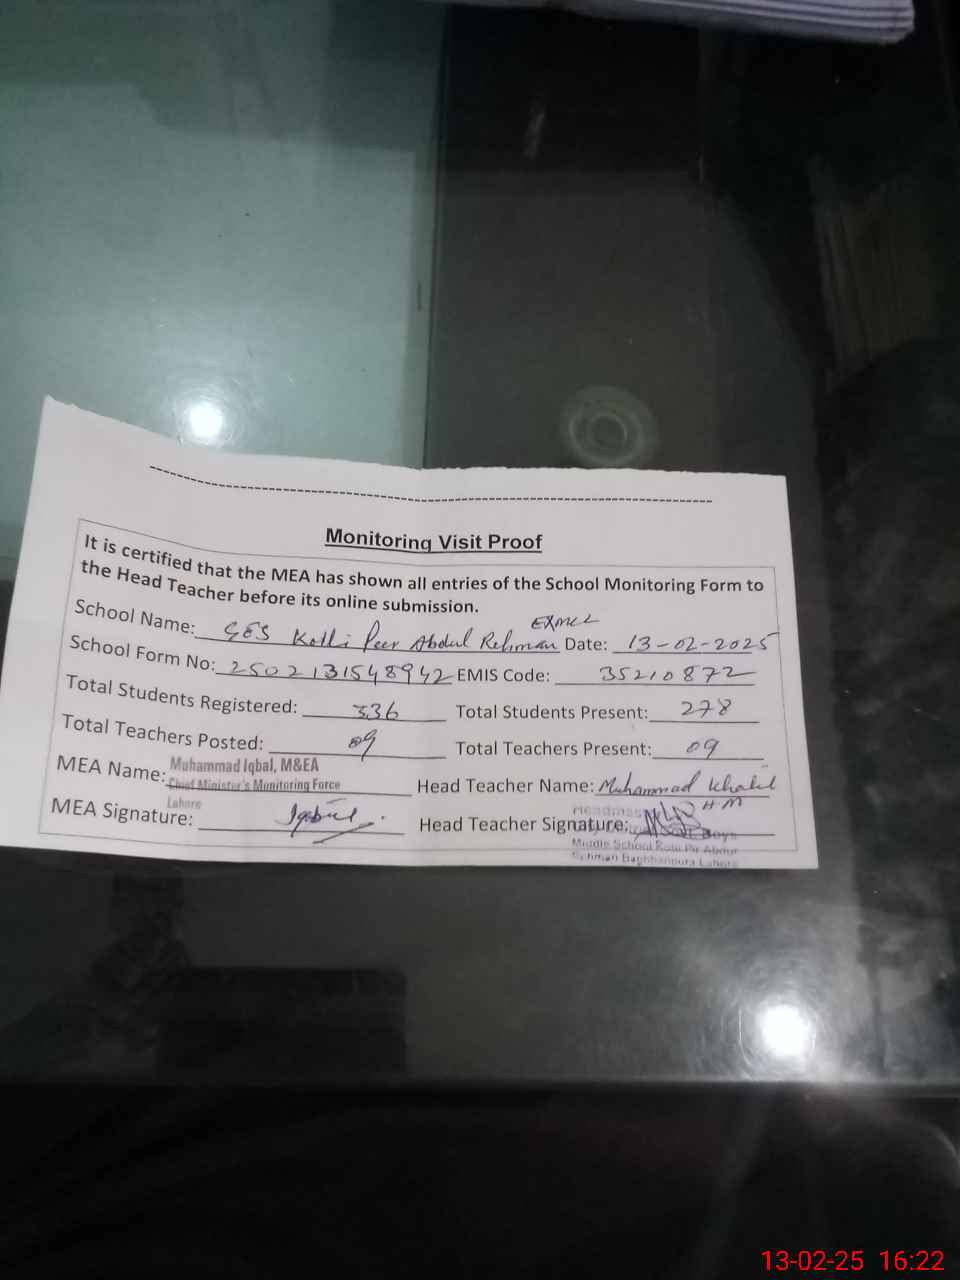 Monitoring Visit Proof
It is certified that the MEA has shown all entries of the School Monitoring Form to
the Head Teacher before its online submission.
School Name: GES Kotli Peer Abdul Rehman Date: 13-02-2025
School Form No: 2502131548942 EMIS Code: 35210872
Total Students Registered: 336 Total Students Present: 278
Total Teachers Posted: 09 Total Teachers Present: 09
MEA Name: Muhammad Iqbal, M&EA
Chief Minister's Monitoring Force
Lahore
Head Teacher Name: Muhammad Khalil
H M
MEA Signature: Iqbal Head Teacher Signature:
Boys
Middle School Kotli Pir Abdur
Rehman Baghbanpura Lahore
13-02-25 16:22